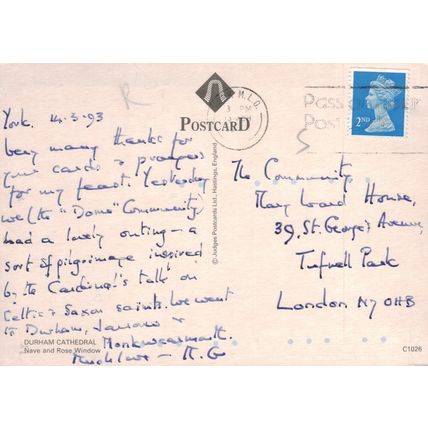 York. 14-3-93
Very many thanks for
your cards & prayers
for my feast. Yesterday
we (the "Domo" Community)
had a lovely outing - a
sort of pilgrimage inspired
by the Cardinal's talk on
Celtic & Saxon saints. We went
to Durham, Jarrow &
Monkwearmouth.
Much love - M. G
DURHAM CATHEDRAL
Nave and Rose Window
POSTCARD
© Judges Postcards Ltd., Hastings, England.
M.L.O.
3 PM
2ND
R
S
The Community
Mary Ward House,
39, St. George's Avenue,
Tufnell Park
London N7 0HB
C1026